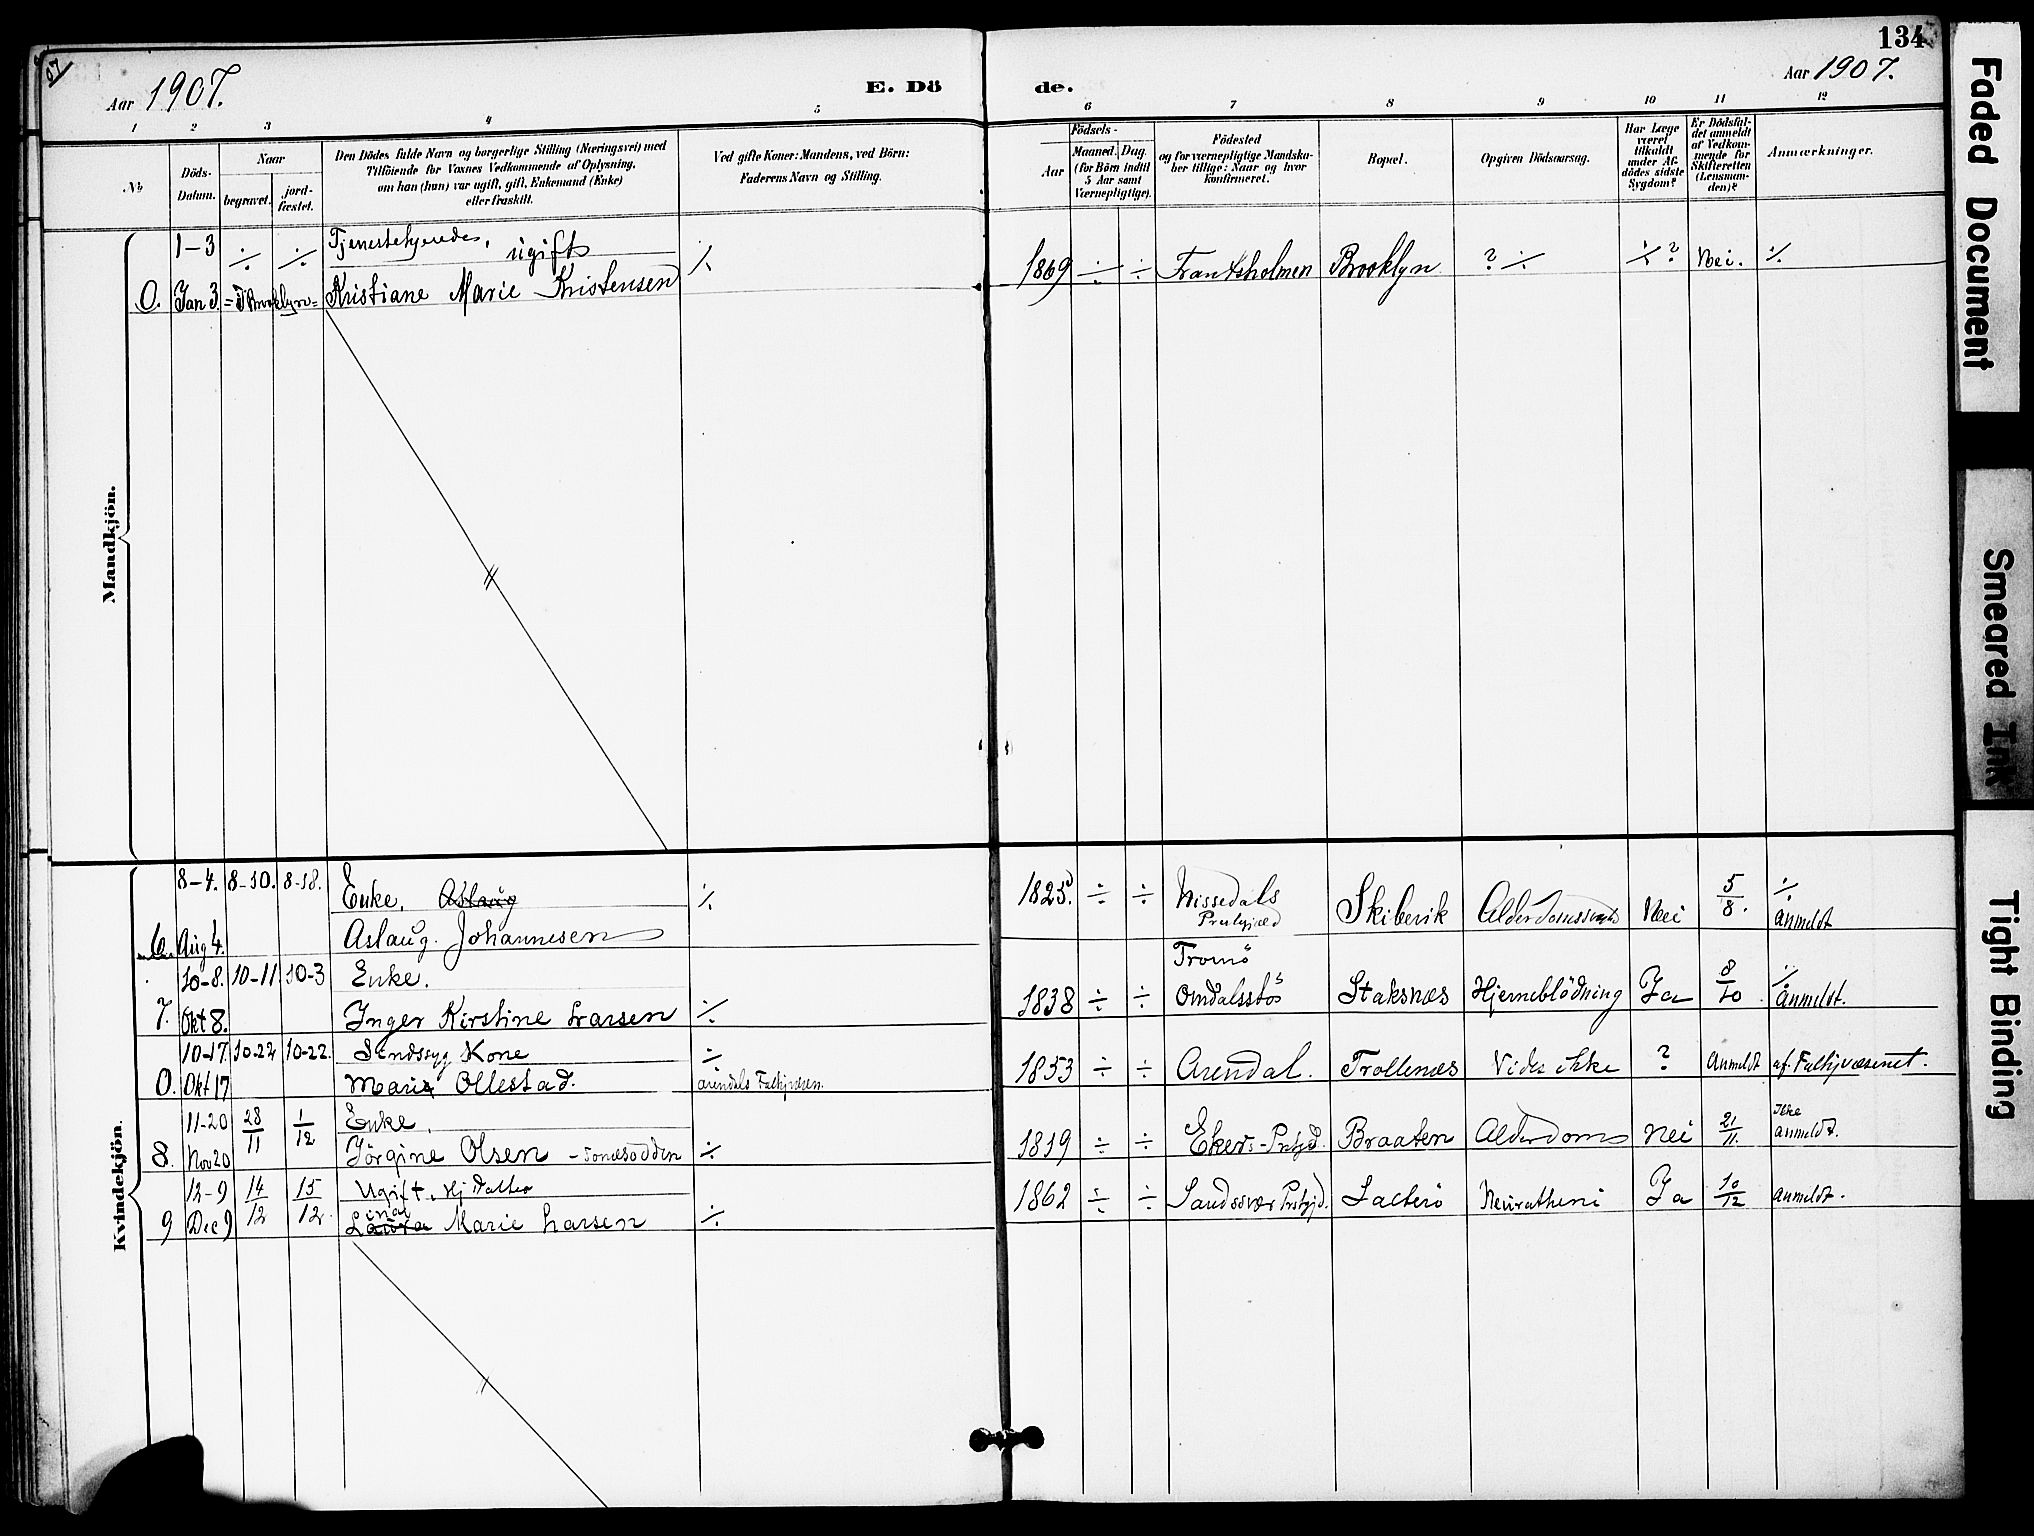 134
07
Aar 1907.
E. Dö
de.
Aar 1907.
1 2 3 4 5 6 7 8 9 10 11 12
No
Döds-
Datum.
Naar
begravet.
jord-
fæstet.
Den Dödes fulde Navn og borgerlige Stilling (Næringsvei) med
Tilföiende for Voxnes Vedkommende af Oplysning,
om han (hun) var ugift, gift, Enkemand (Enke)
eller fraskilt.
Ved gifte Koner: Mandens, ved Börn:
Faderens Navn og Stilling.
Födsels-
Aar
Maaned. Dag.
(for Börn indtil
5 Aar samt
Værnepligtige).
Födested
og for værnepligtige Mandska-
ber tillige: Naar og hvor
konfirmeret.
Bopæl.
Opgiven Dödsaarsag.
Har Læge
været
tilkaldt
under Af-
dödes sidste
Sygdom?
Er Dödsfal-
det anmeldt
af Vedkom-
mende for
Skifteretten
(Lensman-
den)?
Anmærkninger.
Mandkjön.
1-3 ÷ ÷ ugift ÷ 1869 ÷ ÷ Frantsholmen Brooklyn ? ÷ ÷ ? Nei. ÷
0. Jan 3. = I Brooklyn = Kristiane Marie Kristensen
Kvindekjön.
8-4. 8-10. 8-18. Enke. Aslaug ÷ 1825. ÷ ÷ Nissedals Skibevik Nei 5/8. ÷
6. Aug 4. Aslaug Johannesen Anmeldt
10-8. 10-11 10-3 Enke. Tromö
7. Okt 8. Inger Kirstine Larsen ÷ 1838 ÷ ÷ Omdalsstös Staksnæs Hjerneblödning Ja 8/10. ÷ Anmeldt.
10-17. 10-22 10-22. Sindssyg Kone ÷ 1853 ÷ ÷ Arendal. Trollenæs Vides ikke ? Anmeldt af Fathjvæsenet.
0. Okt 17 Marie Ollestad. Arendals Fathjvæsen.
11-20 28/11 1/12 Enke. Ikke
8. Nov 20 Jörgine Olsen - Tonesodden ÷ 1819 ÷ ÷ Ekers-Prstgjd. Braaten Alderdom Nei 21/11. anmeldt.
12-9 14/12 15/12. Ugift. Hj Datter 1862 ÷ ÷ Sandsvær Prstgjd. Salterö Ja 10/12 anmeldt.
ina
9 Dec 9 Laura Marie Larsen ÷
Faded Document
Smeared Ink
Tight Binding